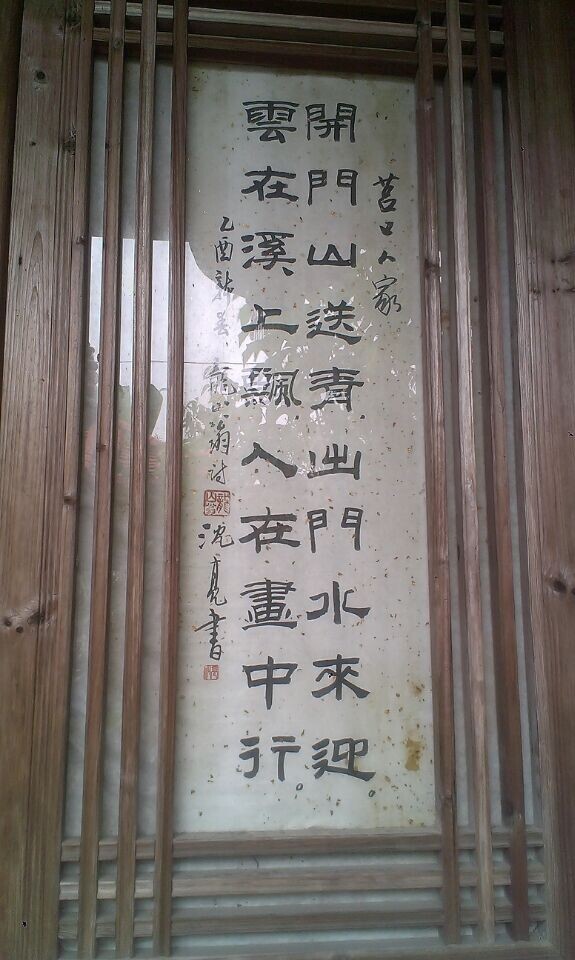 苕口人家
開門山送青出門水來迎。
雲在溪上飄人在畫中行。
乙酉新春龍山翁詩 沈亮書